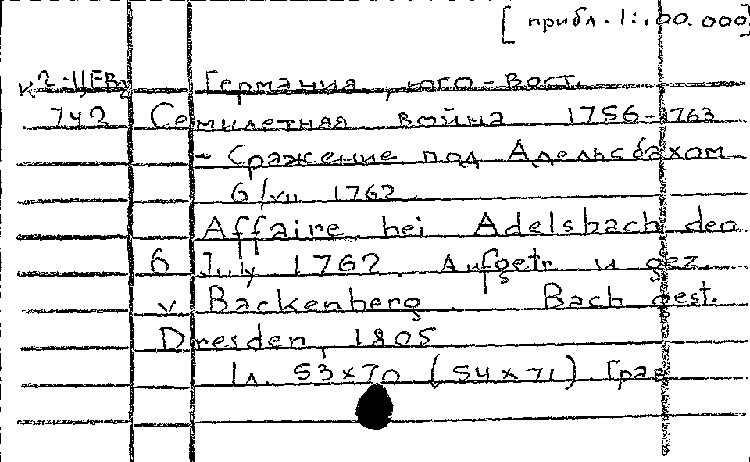 [прибл. 1: 00.000]
К 2-ЦЕВ Германия, юго-вост.
742 Семилетняя война 1756-1763
- Сражение под Адельсбахом
6/VII 1762
Affaire bei Adelsbach den
6 July 1762. Aufgetr. u gez.
v. Backenberg. Bach gest.
Dresden, 1805
1л. 53x70 (54x71) Грав